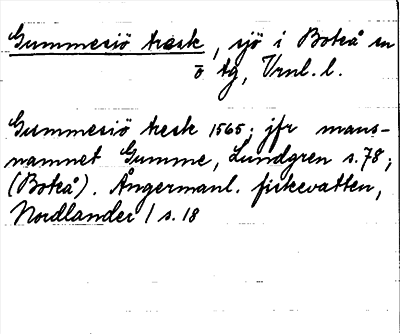 Gummesiö træsk, sjö i Boteå sn
ö tg, Vrnl. l.
Gummesiö tresk 1565; jfr mans-
namnet Gumme, Lundgren s. 78;
(Boteå). Ångermanl. fiskevatten,
Nordlander / s. 18